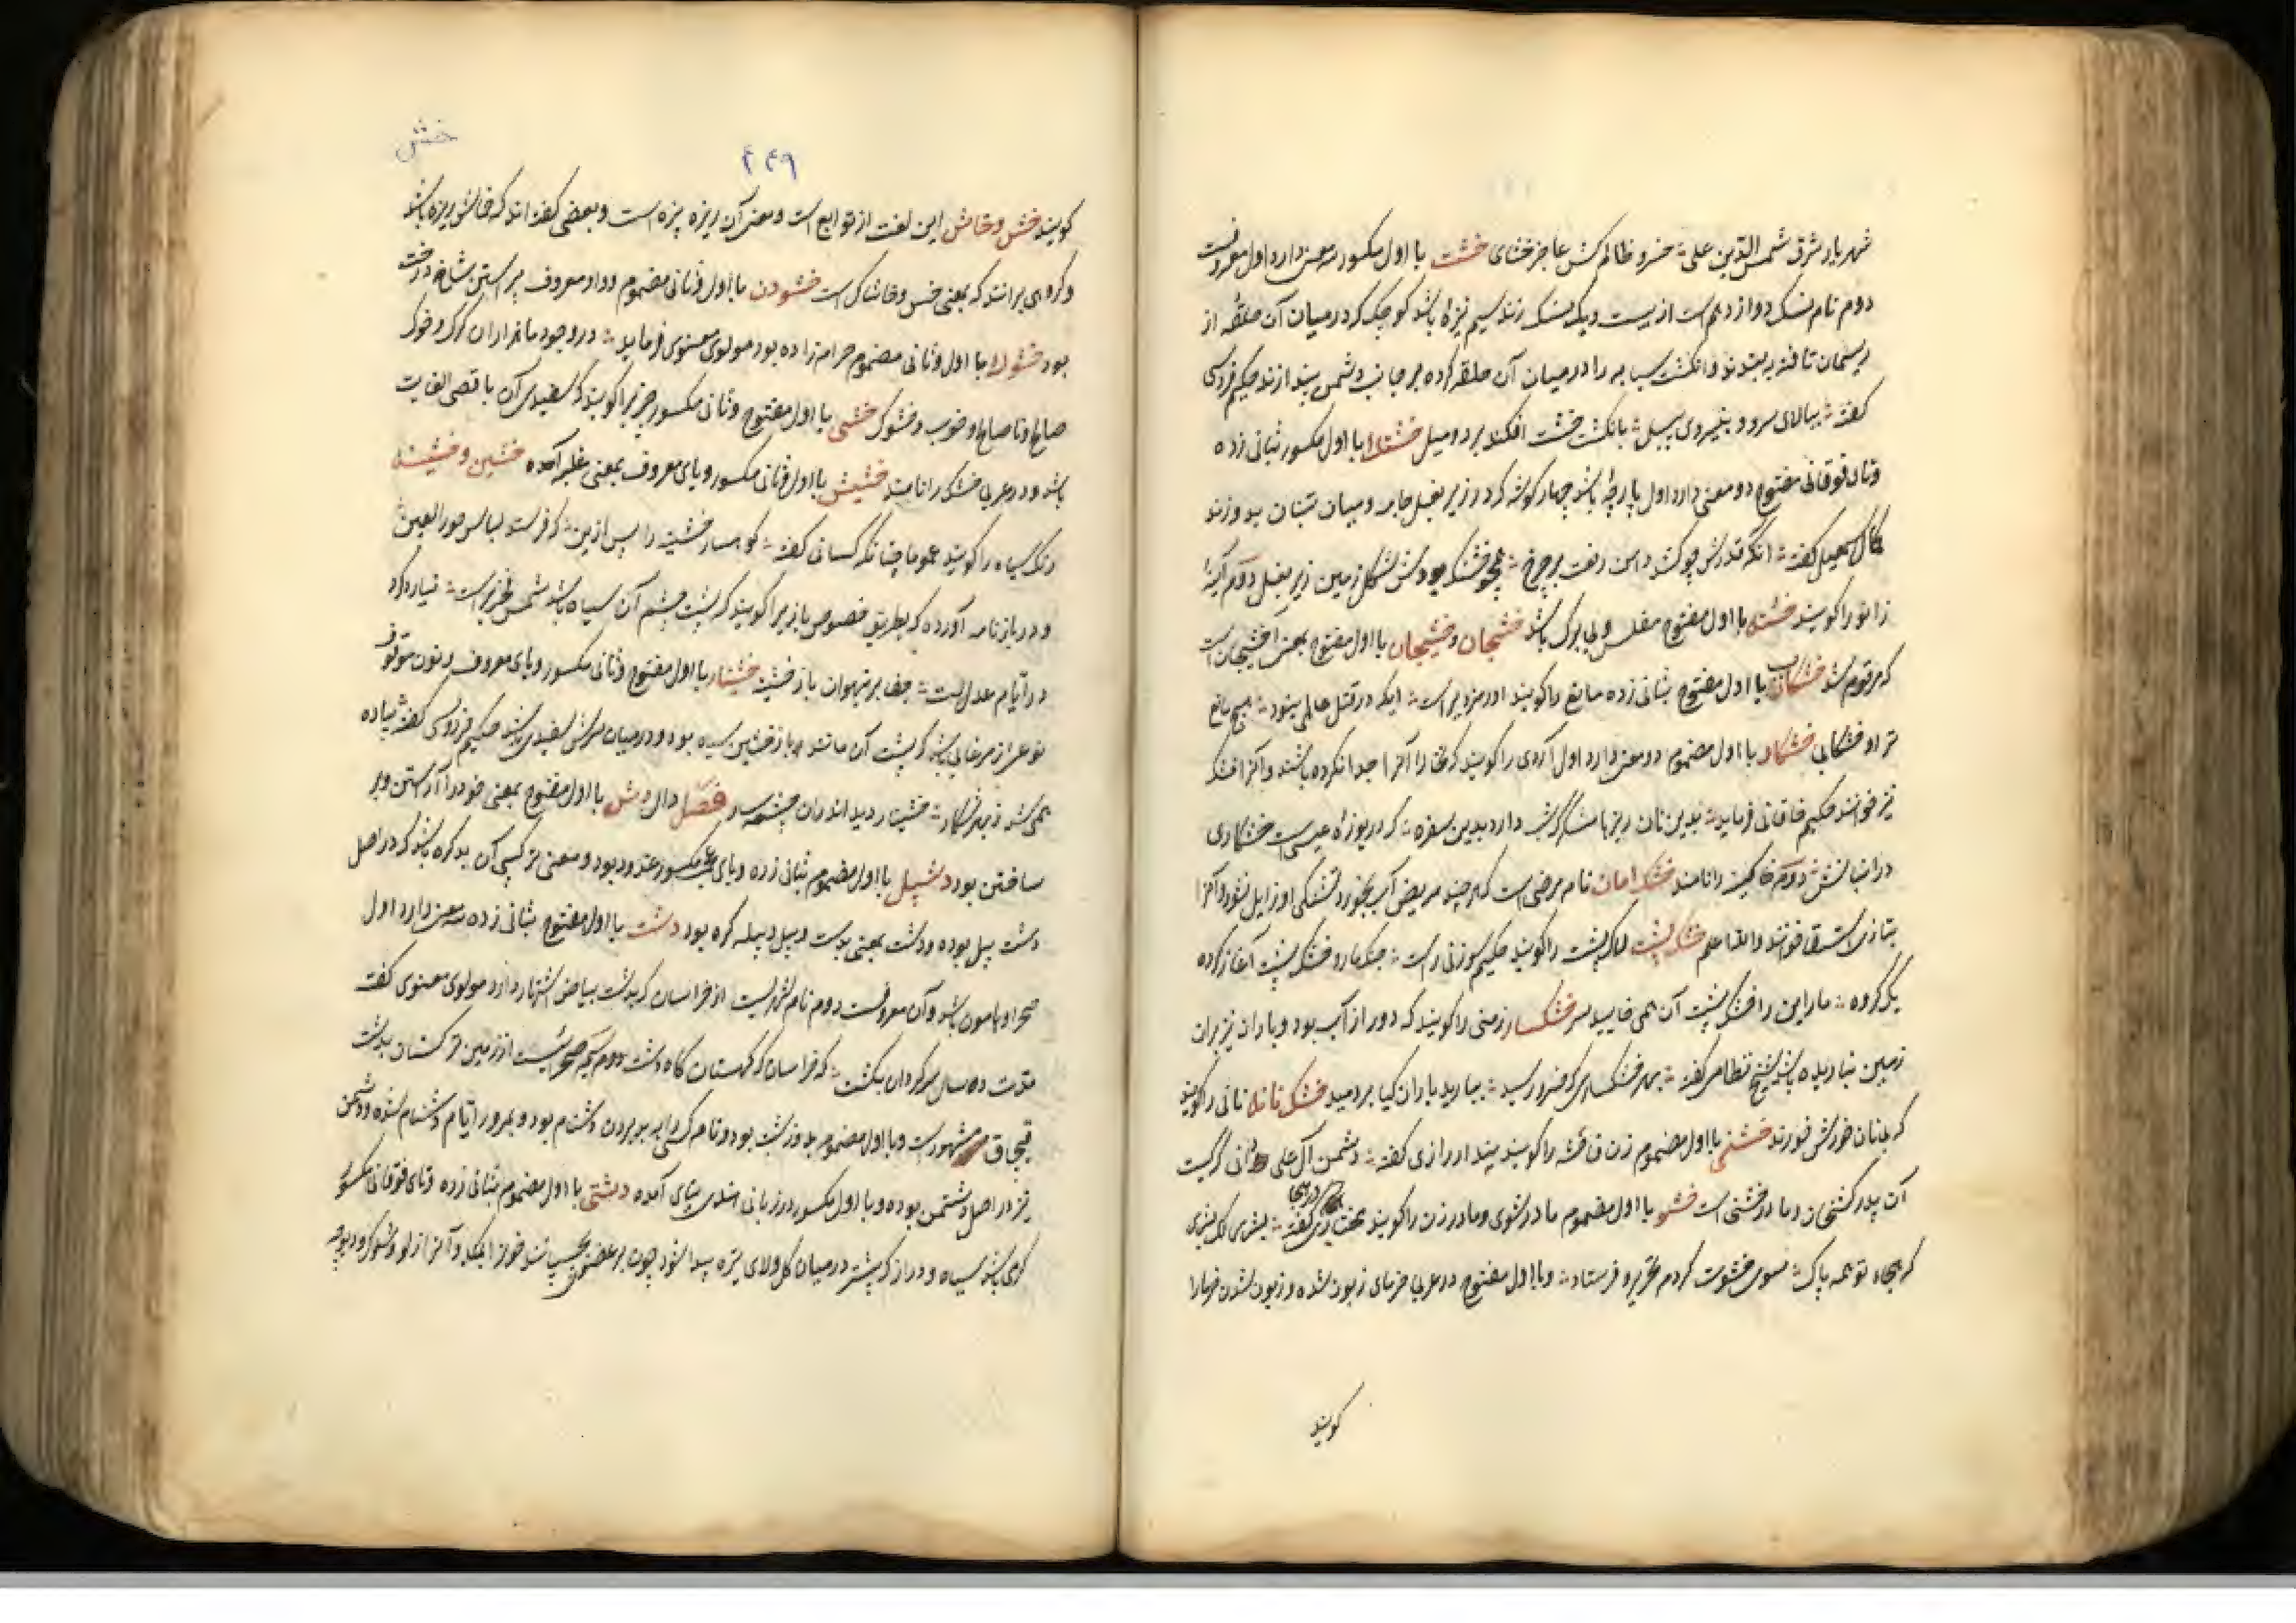 شهریار شرق شمس الدین علی خسرو ظالم کش عاجز بخشای خشت با اول مکسور سه معنی دارد اول معروفست
دوم نام نسک دوازدهم است از بیست و یک نسک زند سیم نیزهٔ باشد کوچک که در میان آن حلقهٔ از
ریسمان تافته بر بندند و انگشت سبابه را در میان آن حلقه کرده بر جانب دشمن بیندازند حکیم فردوسی
گفته ببالای سرو و بنیروی پیل بانگشت خشت افکند بر دو میل خشتک با اول مکسور بثانی زده
و تای فوقانی مفتوح دو معنی دارد اول پارچهٔ باشد چهار گوشه که در زیر بغل جامه و میان تنبان بدوزند
کمال اسمعیل گفته آنکه قدرش چو کشد دامن رفعت بر چرخ همچو خشتک بودش شکل زمین زیر بغل دوم آینهٔ
زانو را گویند خشته با اول مفتوح مفلس و بی برگ باشد خشنجان و خشیجان با اول مفتوح بمعنی اخشیجان است
که مرقوم شد خشکاب با اول مفتوح بثانی زده مانع را گویند اورمزدیر است ایکه در قتل عالمی بینود هیچ مانع
ترا و خشکابی خشکار با اول مضموم دو معنی دارد اول آردی را گویند که نخاله آنرا جدا نکرده باشند و آنرا خشکه
نیز خوانند حکیم خاقانی فرماید بدین نان ریزها منگر که شب دارد بدین سفره که در یوزه عیسی است خشکاری
در انبانش دوم خاگینه را نامند خشک امان نام مرضی است که هر چند مریض آب بخورد تشنگی او زایل نشود و آنرا
بتازی استسقا خوانند والله اعلم خشک پشت لاک پشت را گویند حکیم سوزنی راست جنگ مار و خشک پشت آغاز کرده
یک گروه مار این را خشک پشت آن همی خایید سر خشکسار زمینی را گویند که دور از آب بود و باران نیز بران
زمین نباریده باشد شیخ نظامی گفته بهر خشکساری که خسرو رسید ببارید باران گیا بر دمید خشک نانه نانی را گویند
که بی نان خورش خورند خشنی با اول مضموم زن فاحشه را گویند پندار رازی گفته دشمن آل علی دانی کیست
آن پدر کشخان و مادر خشنی است خشو با اول مضموم مادر شوی و مادر زن را گویند
که بجاه تو همه پاک سوی خشوت کردم فرستاد و با اول مفتوح در عربی خرمای زبون شده و زبون شدن خرما را
گویند
خش
۴۴۹
گویند خش و خاش این لغت از توابع است و معنی آن ریزه پزه است و بعضی گفته اند که خاش ریزه باشد
و گروهی برانند که بمعنی خس و خاشاک است خشودن با اول و ثانی مضموم و واو معروف پیراستن شاخ درخت
بود خشوک با اول و ثانی مضموم حرام زاده بود مولوی معنوی فرماید در وجود ما هزاران گرگ و خوک
صالح و ناصالح و خوب و خشوک خشی با اول مفتوح و ثانی مکسور چیزی را گویند که سفیدی آن باقصی الغایت
باشد و در عربی خشک را نامند خشیش با اول و ثانی مکسور و یای معروف بمعنی غلبه آمده خشین و خشینه
رنگ سیاه را گویند عموما چنانکه کسائی گفته کوهسار خشینه را پس ازین که فرستد لباس حور العین
و در بازنامه آورده که بطریق خصوص بازی را گویند که پشت و چشم آن سیاه باشد شمس فخری راست نیارد کرد
در ایام عدالت جفا بر تیهوان باز خشینه خشنسار با اول مفتوح و ثانی مکسور و یای معروف و نون موقوف
نوعی از مرغابی باشد که پشت آن مانند باز خشین سیاه بود و در میان سرش سفیدی باشد حکیم فردوسی گفته پیاده
همی شد ز بهر شکار خشینسار دید اندران چشمه سار فصل دال دش با اول مفتوح بمعنی خود را آراستن و بر
ساختن بود دشپیل با اول مضموم بثانی زده و بای عجمی مکسور غدود بود و معنی ترکیبی آن بد گره باشد که در اصل
دشت پیل بوده و دشت بمعنی بدست و پیل و پیله گره بود دشت با اول مفتوح بثانی زده سه معنی دارد اول
صحرا و هامون باشد و آن معروفست دوم نام شهریست از خراسان که بدشت بیاض اشتهار دارد مولوی معنوی گفت
مدت ده سال سر گردان بگشت که خراسان که کهستان گاه دشت سیم صحرائیست از زمین ترکستان بدشت
قبچاق مشهور است و با اول مضموم بد و زشت بود و نام کسی را به بدی بردن دشنام بود و بمرور ایام دشنام شده و دشمن
نیز در اصل دشتمن بوده و با اول مکسور در زبانی هندی بینائی آمده دشتی با اول مضموم بثانی زده و تای فوقانی مکسور
کرمی باشد سیاه و دراز که بیشتر در میان گل و لای تیره پیدا شود چون بر عضوی بچسپانند خون را بمکد و آنرا زلو و شلوک و دیوچه